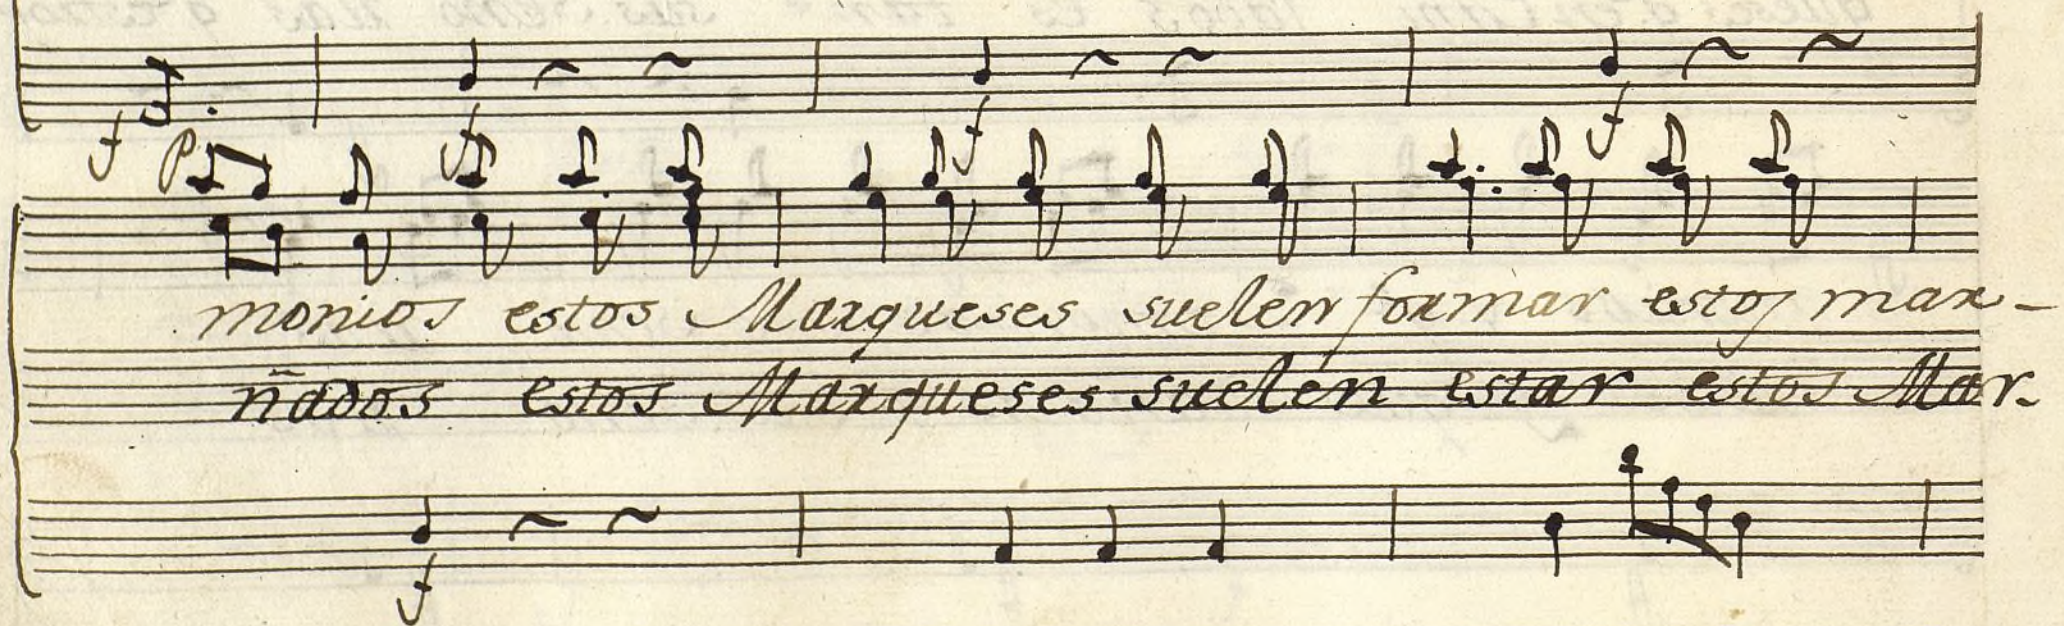 f f f f
p
monios estos Marqueses suelen formar estos mar-
ñados estos Marqueses suelen estar estos Mar-
f